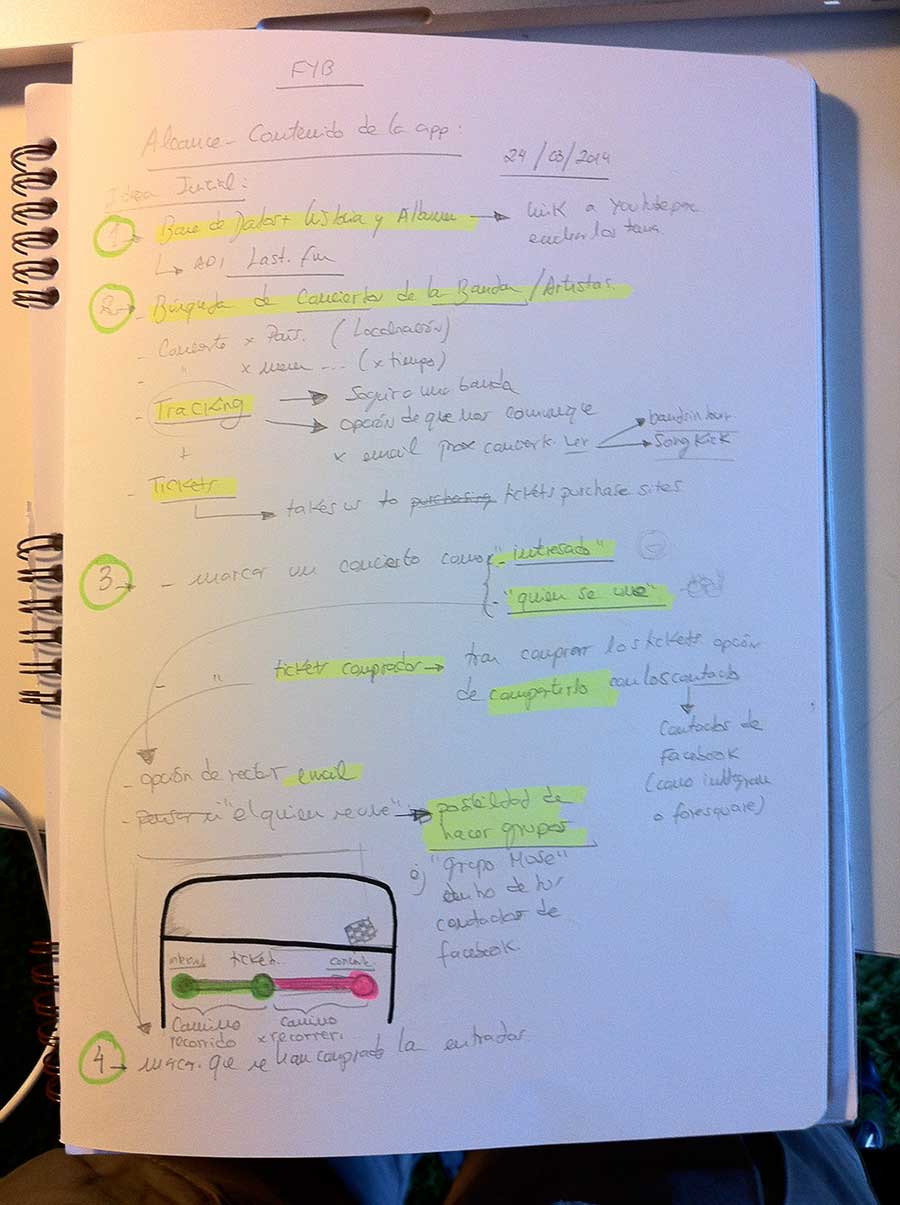 FYB
Alcance - Contenido de la app:
24/03/2014
Idea Inicial:
1 Base de Datos + historia y Albums → link a Youtube para
escuchar los temas
↳ API Last.fm
2 - Búsqueda de Conciertos de la Banda / Artistas
- Concierto x País. (Localización)
- " x ... (x tiempo)
- Tracking → Seguir a una banda
→ opción de que nos comunique
x email prox concierto. ver → bandsintown
→ SongKick
+
- Tickets
→ takes us to purchasing tickets purchase sites
3 → - marcar un concierto como - "intresado"
- "quien se une"
- " tickets comprados → tras comprar los tickets opción
de compartirlo con los contactos
↓
Contactos de
Facebook
(como instagram
o foresquare)
- opción de recibir email
- pensar si "el quien se une" → posibilidad de
hacer grupos
ej "grupo Muse"
dentro de tus
contactos de
facebook.
ticket.. concierto
Camino camino
recorrido x recorrer.
4 → marcar que se han comprado la entradas